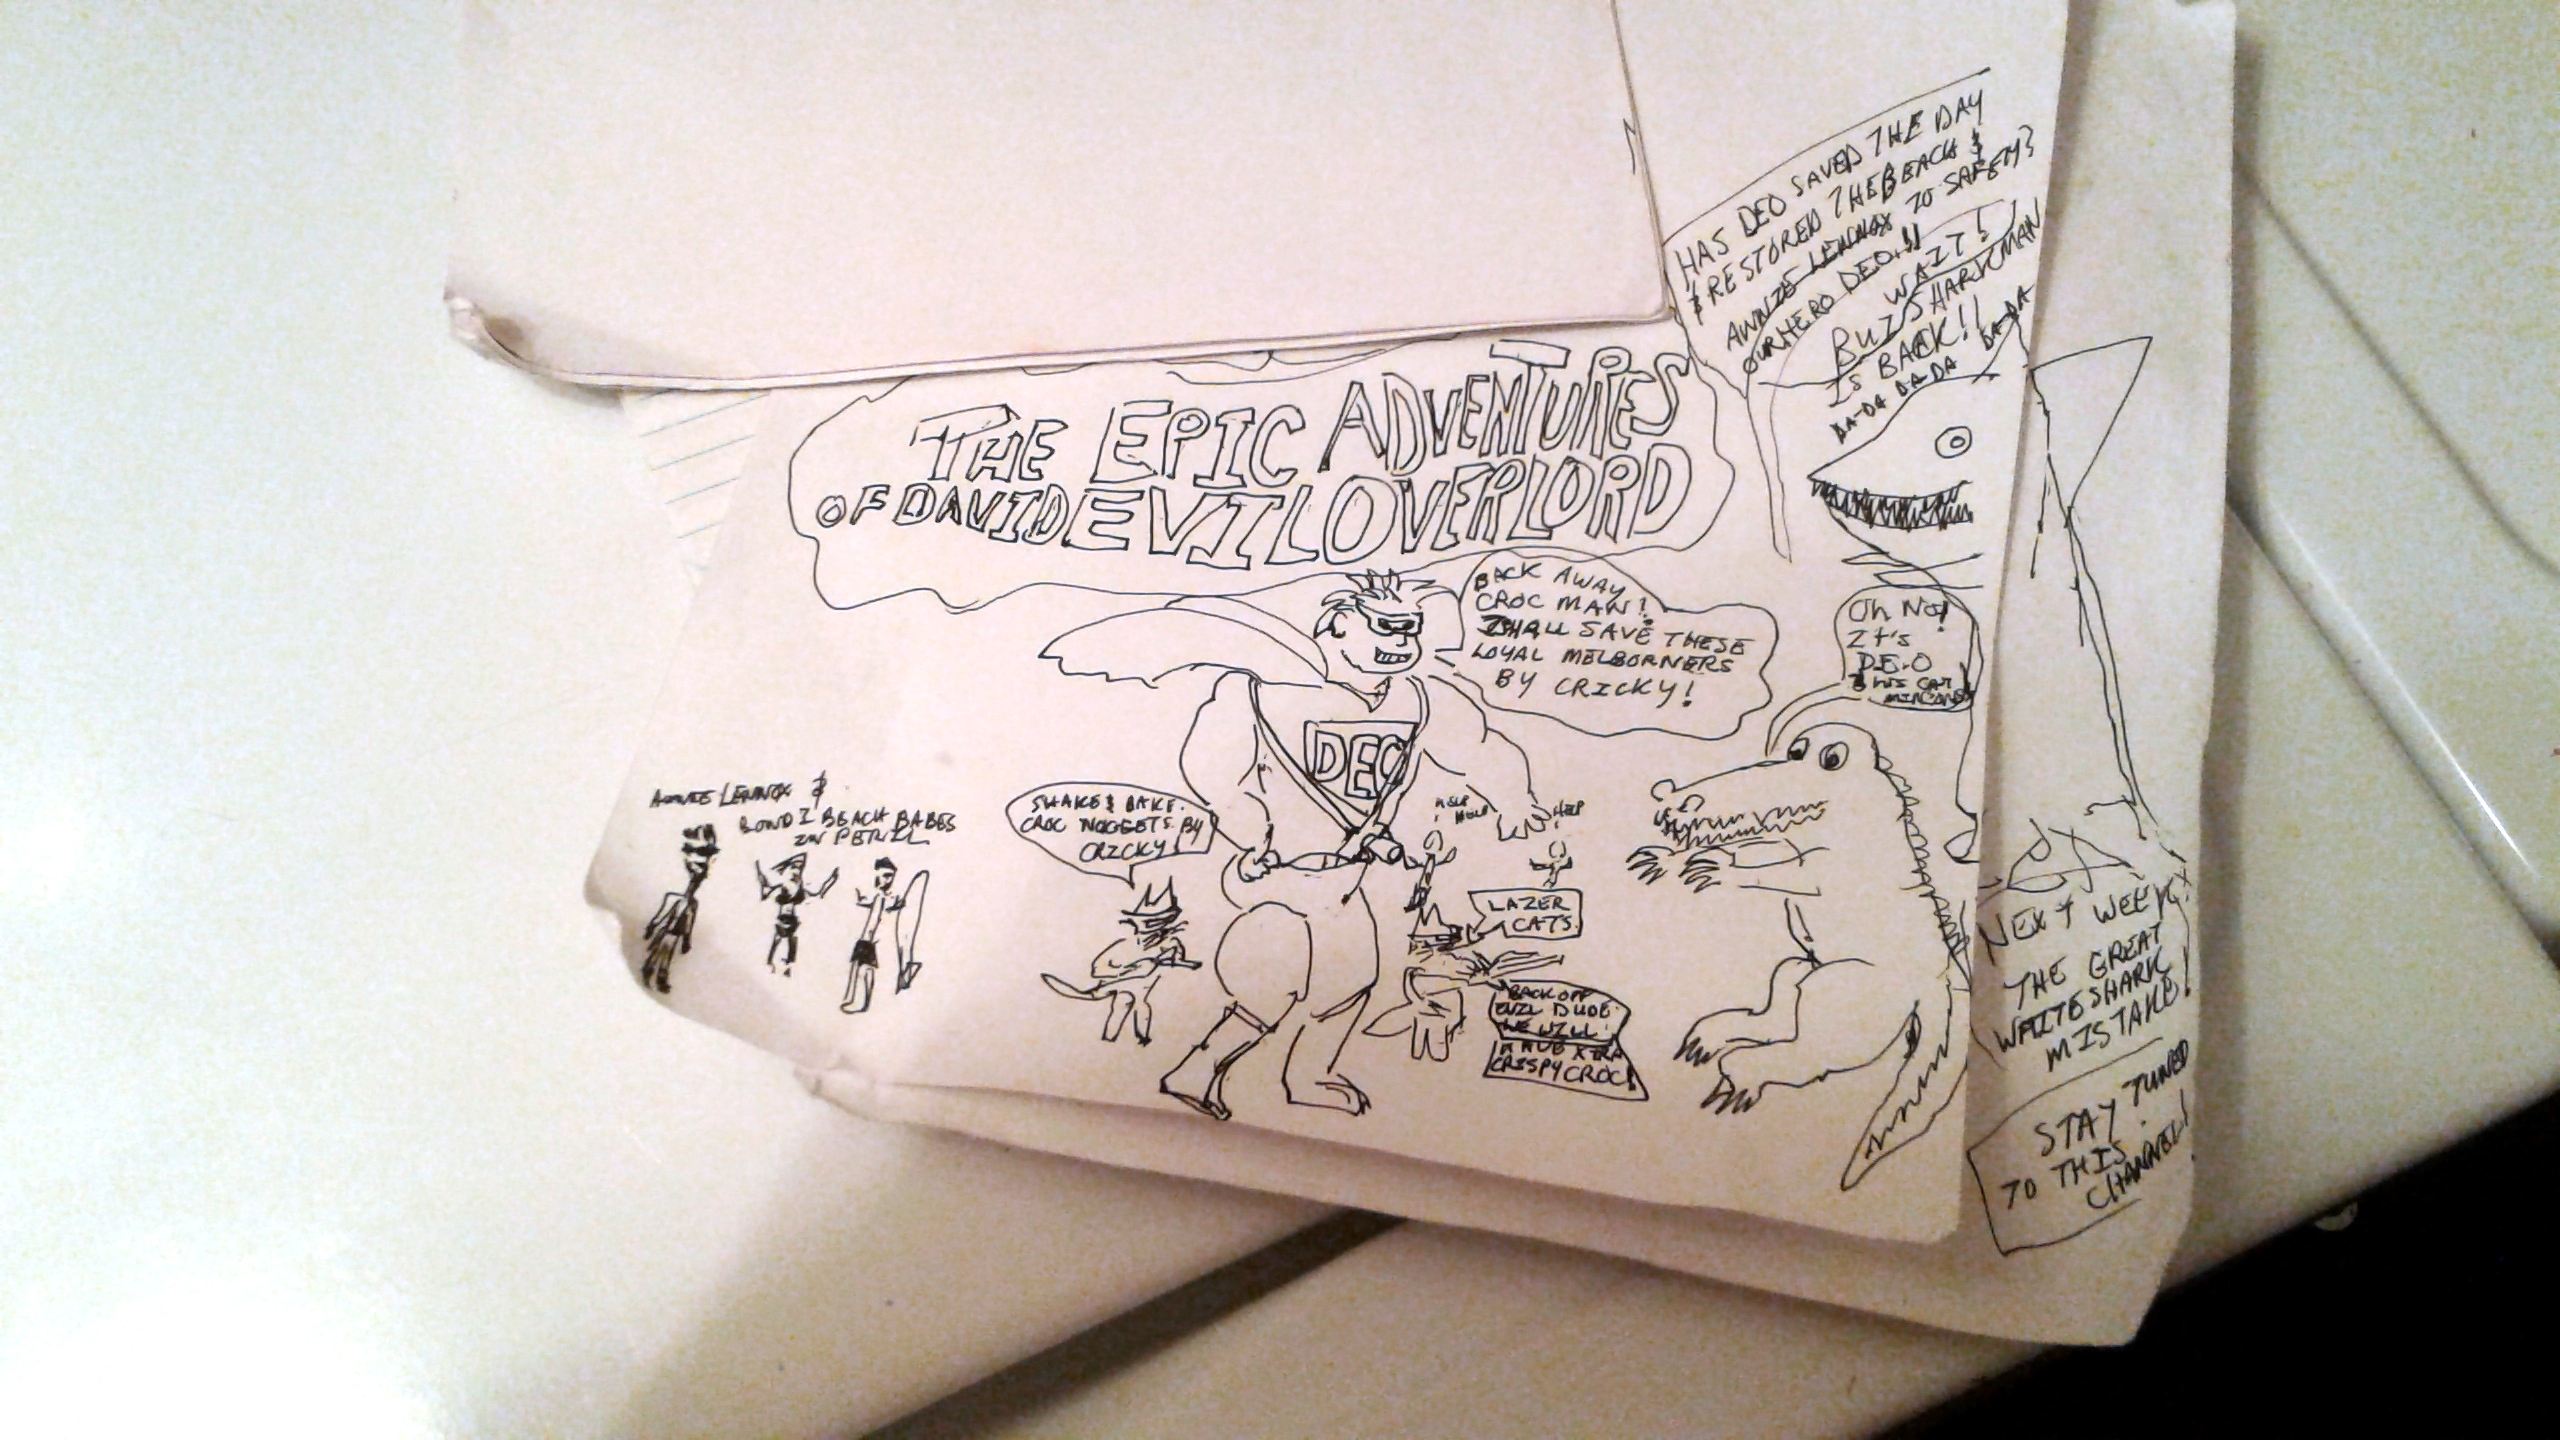 THE EPIC ADVENTURES
OF DAVID EVIL OVERLORD
HAS DEO SAVED THE DAY
& RESTORED THE BEACH &
ANNIE LENNOX TO SAFETY?
OUR HERO DEO!!
WAIT!
BUT SHARKMAN
IS BACK!!
DA-DA DA-DA DA-DA
BACK AWAY
CROC MAN!
I SHALL SAVE THESE
LOYAL MELBORNERS
BY CRICKY!
Oh No!
It's
D.E.O
& HIS CAT
DEO
ANNIE LENNOX &
BONDI BEACH BABES
IN PERIL
SHAKE & BAKE
CROC NOGGETS BY
CRICKY
HELP
HELP
HELP
LAZER
CATS
BACK OFF
EVIL DUDE
WE WILL
HAVE XTRA
CRISPY CROC!
NEXT WEEK
THE GREAT
WHITE SHARK
MISTAKE!
STAY TUNED
TO THIS
CHANNEL!